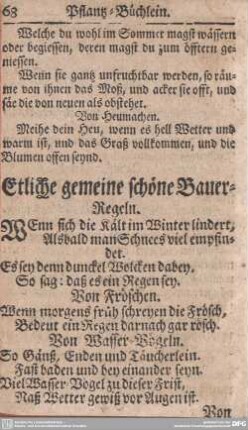 68 Pflantz-Büchlein.
Welche du wohl im Sommer magst wässern
oder begiessen, deren magst du zum öfftern ge-
niessen.
Wenn sie gantz unfruchtbar werden, so räu-
me von ihnen das Moß, und acker sie offt, und
säe die von neuen als obstehet.
Von Heumachen.
Meihe dein Heu, wenn es hell Wetter und
warm ist, und das Graß vollkommen, und die
Blumen offen seynd.
Etliche gemeine schöne Bauer-
Regeln.
WEnn sich die Kält im Winter lindert,
Alsbald man Schnees viel empfin-
det.
Es sey denn dunckel Wolcken dabey,
So sag: daß es ein Regen sey.
Von Fröschen.
Wenn morgens früh schreyen die Frösch,
Bedeut ein Regen darnach gar rösch.
Von Wasser-Vögeln.
So Gänß, Enden und Täucherlein.
Fast baden und bey einander seyn.
Viel Wasser-Vogel zu dieser Frist,
Naß Wetter gewiß vor Augen ist.
Von